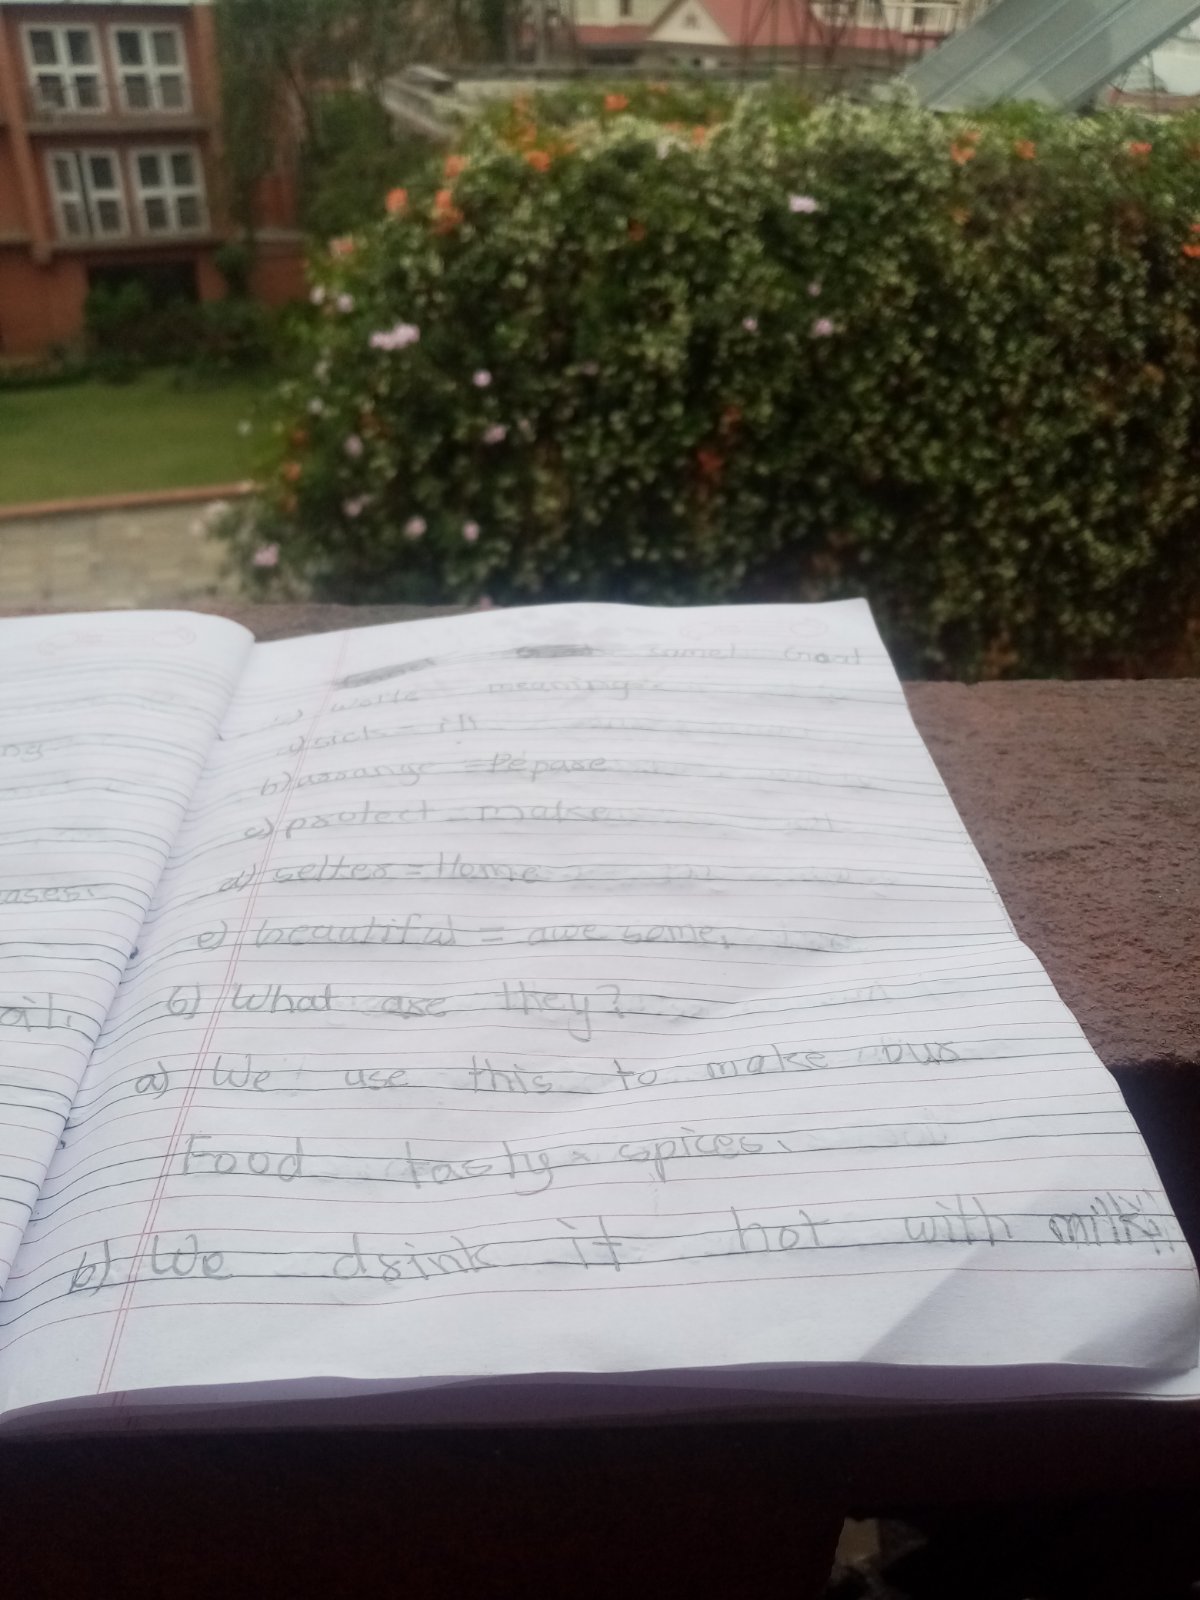 meaning.
a) sick = ill
b) arrange = Pepare
c) protect = make
d) selter = Home
e) beautiful = awe some.
6) What are they?
a) We use this to make our
Food tasty. spices.
b) We drink it hot with milk.
ases.